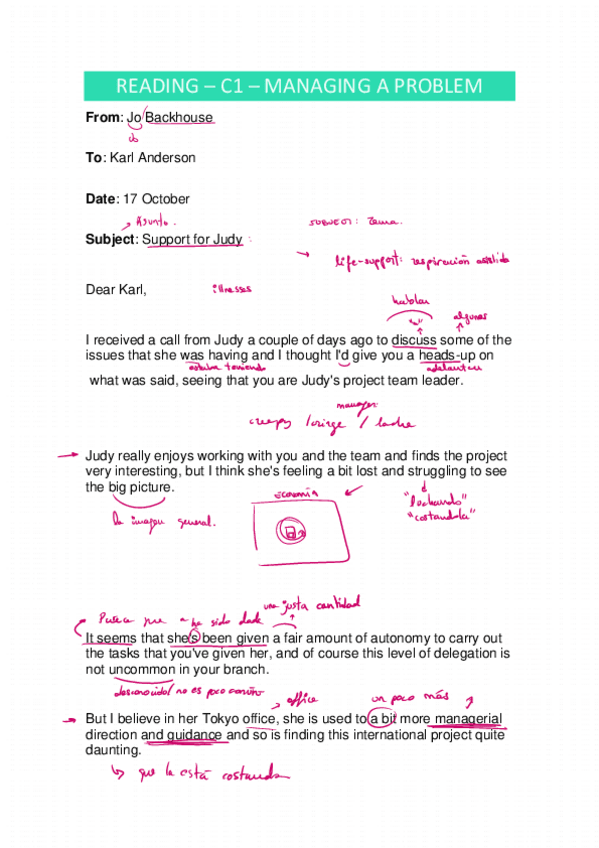 READING – C1 – MANAGING A PROBLEM
From: Jo Backhouse
To: Karl Anderson
Date: 17 October
Asunto.
SUBJECT: Tema.
Subject: Support for Judy
life-support: respiración asistida
Dear Karl,
illnesses
hablar
algunas
I received a call from Judy a couple of days ago to discuss some of the
issues that she was having and I thought I'd give you a heads-up on
estaba teniendo
what was said, seeing that you are Judy's project team leader.
manager
creepy / cringe /
Judy really enjoys working with you and the team and finds the project
very interesting, but I think she's feeling a bit lost and struggling to see
the big picture.
economía
"luchando"
"costandola"
la imagen general.
una justa cantidad
Parece que ha sido dada
It seems that she's been given a fair amount of autonomy to carry out
the tasks that you've given her, and of course this level of delegation is
not uncommon in your branch.
desconocido/ no es poco común
office
un poco más
But I believe in her Tokyo office, she is used to a bit more managerial
direction and guidance and so is finding this international project quite
daunting.
que la está costando